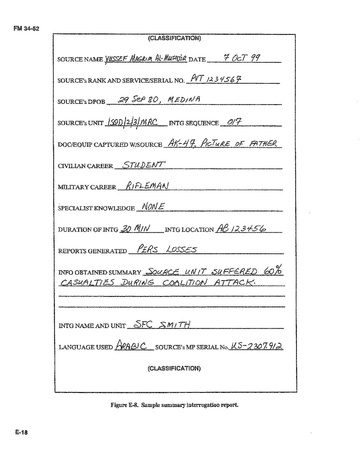 FM 34-52
(CLASSIFICATION)
SOURCE NAME YUSSEF MAGRIM AL-MUPHDIR DATE 7 OCT 99
SOURCE'S RANK AND SERVICE/SERIAL NO. PVT 1234567
SOURCE'S DPOB 29 SEP 80, MEDINA
SOURCE'S UNIT 1SQD/2/3/MRC INTG SEQUENCE 017
DOC/EQUIP CAPTURED W/SOURCE AK-47, PICTURE OF FATHER
CIVILIAN CAREER STUDENT
MILITARY CAREER RIFLEMAN
SPECIALIST KNOWLEDGE NONE
DURATION OF INTG 30 MIN INTG LOCATION AB 123456
REPORTS GENERATED PERS LOSSES
INFO OBTAINED SUMMARY SOURCE UNIT SUFFERED 60%
CASUALTIES DURING COALITION ATTACK.
INTG NAME AND UNIT SFC SMITH
LANGUAGE USED ARABIC SOURCE'S MP SERIAL No. US-2307912
(CLASSIFICATION)
Figure E-8. Sample summary interrogation report.
E-18